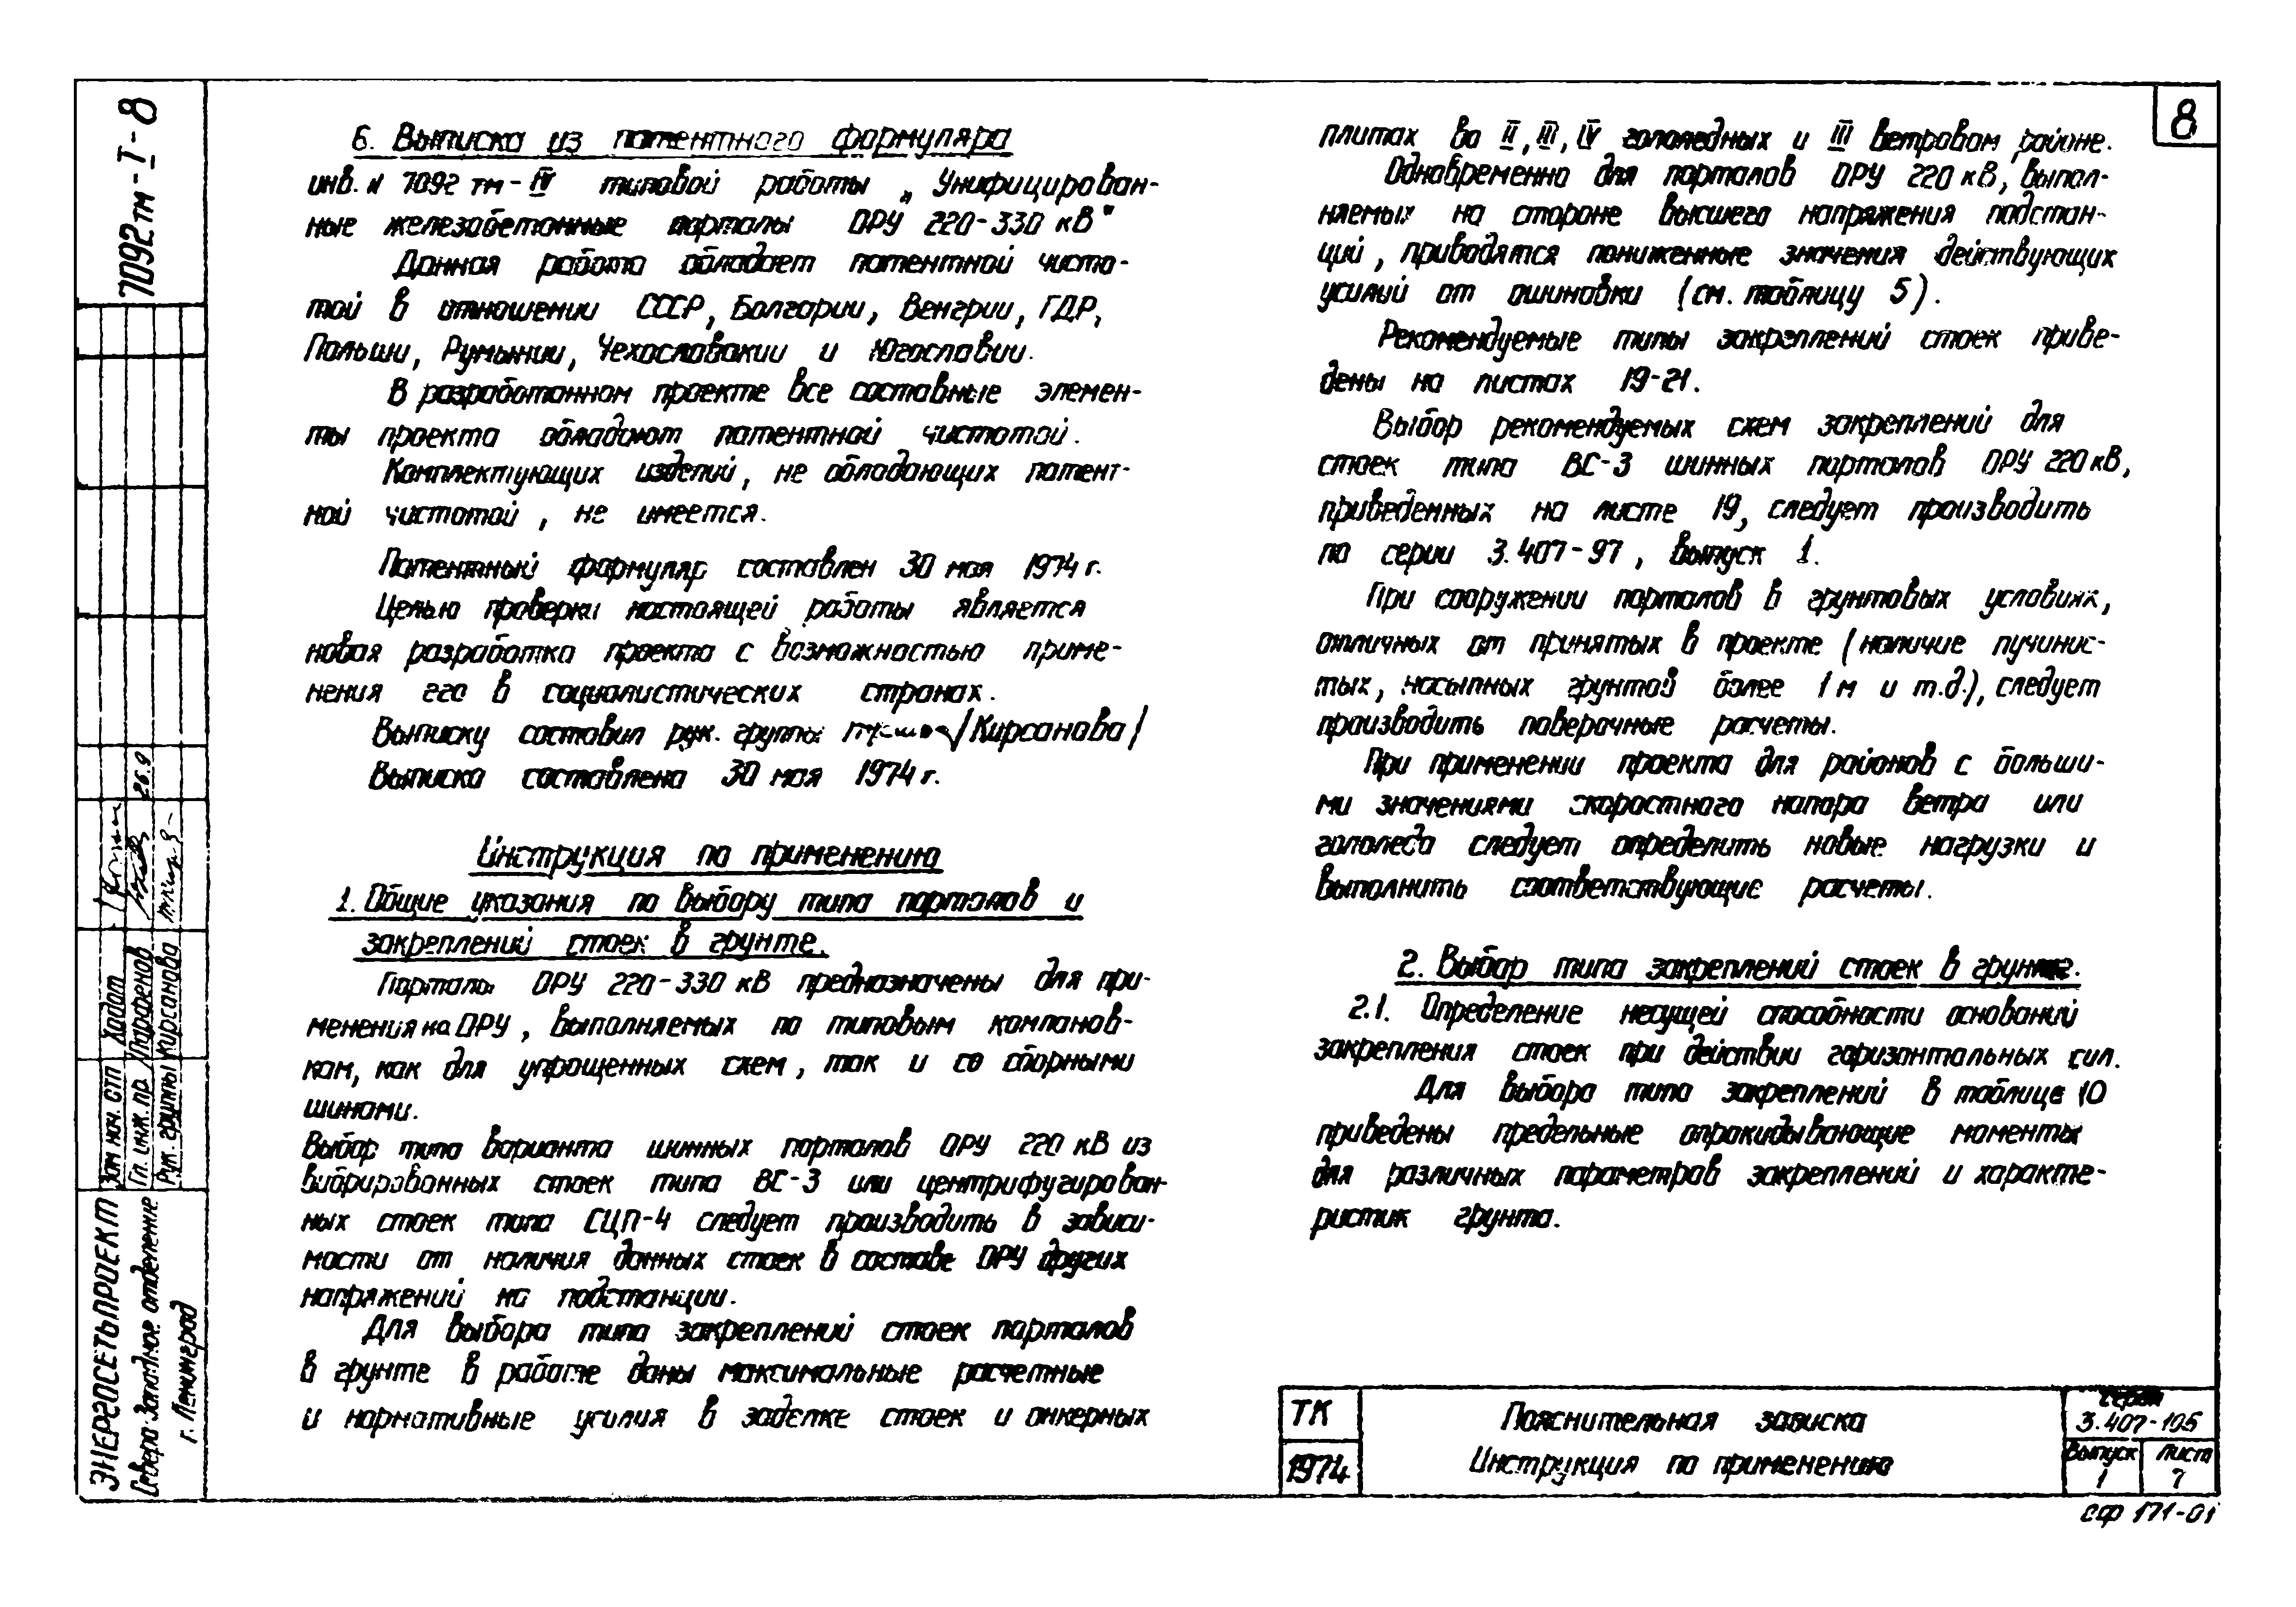 7092тм-I-8
8
6. Выписка из патентного формуляра
инв. N 7092 тм-IV типовой работы „Унифицирован-
ные железобетонные порталы ОРУ 220-330 кВ"
Данная работа обладает патентной чисто-
той в отношении СССР, Болгарии, Венгрии, ГДР,
Польши, Румынии, Чехословакии и Югославии.
В разработанном проекте все составные элемен-
ты проекта обладают патентной чистотой.
Комплектующих изделий, не обладающих патент-
ной чистотой, не имеется.
Патентный формуляр составлен 30 мая 1974 г.
Целью проверки настоящей работы является
новая разработка проекта с возможностью приме-
нения его в социалистических странах.
Выписку составил рук. группы /Кирсанова/
Выписка составлена 30 мая 1974 г.
Инструкция по применению
1. Общие указания по выбору типа порталов и
закреплений стоек в грунте.
Порталы ОРУ 220-330 кВ предназначены для при-
менения на ОРУ, выполняемых по типовым компонов-
кам, как для упрощенных схем, так и со сборными
шинами.
Выбор типа варианта шинных порталов ОРУ 220 кВ из
вибрированных стоек типа ВС-3 или центрифугирован-
ных стоек типа СЦП-4 следует производить в зависи-
мости от наличия данных стоек в составе ОРУ других
напряжений на подстанции.
Для выбора типа закреплений стоек порталов
в грунте в работе даны максимальные расчетные
и нормативные усилия в заделке стоек и анкерных
плитах во II, III, IV гололедных и III ветровом районе.
Одновременно для порталов ОРУ 220 кВ, выпол-
няемых на стороне высшего напряжения подстан-
ций, приводятся пониженные значения действующих
усилий от ошиновки (см. таблицу 5).
Рекомендуемые типы закреплений стоек приве-
дены на листах 19-21.
Выбор рекомендуемых схем закреплений для
стоек типа ВС-3 шинных порталов ОРУ 220 кВ,
приведенных на листе 19, следует производить
по серии 3.407-97, выпуск 1.
При сооружении порталов в грунтовых условиях,
отличных от принятых в проекте (наличие пучинис-
тых, насыпных грунтов более 1 м и т.д.), следует
производить поверочные расчеты.
При применении проекта для районов с больши-
ми значениями скоростного напора ветра или
гололеда следует определить новые нагрузки и
выполнить соответствующие расчеты.
2. Выбор типа закреплений стоек в грунте.
2.1. Определение несущей способности оснований
закрепления стоек при действии горизонтальных сил.
Для выбора типа закреплений в таблице 10
приведены предельные опрокидывающие моменты
для различных параметров закреплений и характе-
ристик грунта.
26.9
Зам. нач. отп Хадот
Гл. инж. пр. Парфенов
Рук. группы Кирсанова
ЭНЕРГОСЕТЬПРОЕКТ
Северо-Западное отделение
г. Ленинград
ТК
1974
Пояснительная записка
Инструкция по применению
Серия
3.407-105
Выпуск
1
Лист
7
сф 171-01